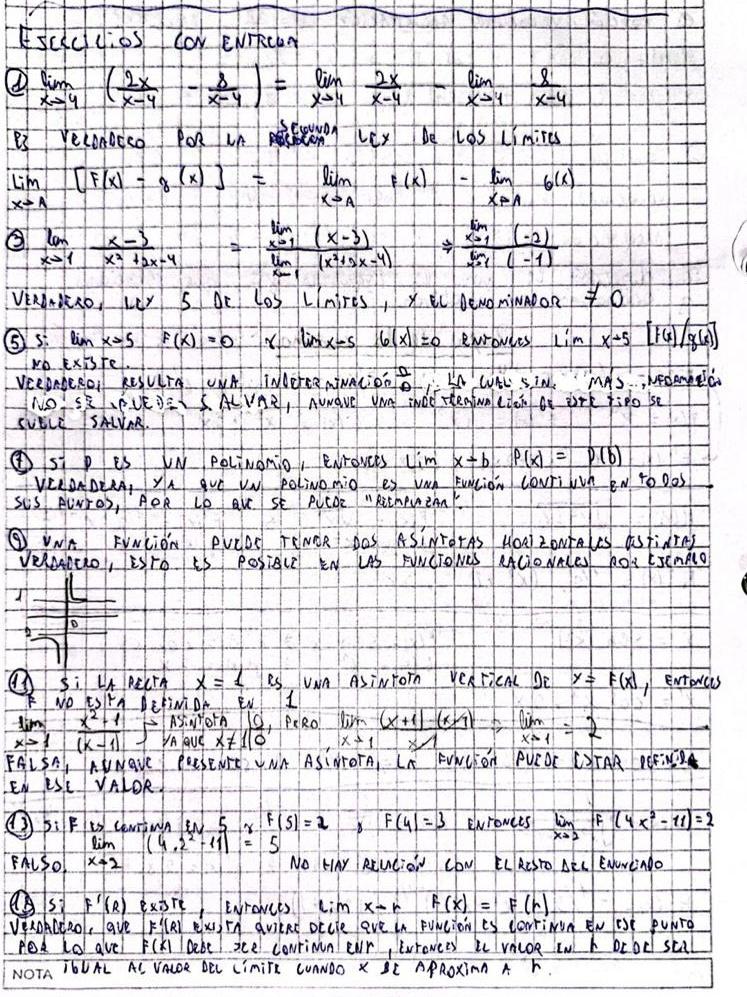 EJERCICIOS CON ENTREGA
① lim x→4 (2x/x-4 - 8/x-4) = lim x→4 2x/x-4 - lim x→4 8/x-4
ES VERDADERO POR LA SEGUNDA LEY DE LOS LÍMITES
Lim x→A [F(x) - g(x)] = lim x→A F(x) - lim x→A G(x)
③ lim x→1 x-3/x²+2x-4 = lim x→1 (x-3)/lim x→1 (x²+2x-4) ⇒ lim x→1 (-2)/lim x→1 (-1)
VERDADERO, LEY 5 DE LOS LÍMITES, Y EL DENOMINADOR ≠ 0
⑤ Si lim x→5 F(x) = 0 y lim x→5 G(x) = 0 ENTONCES Lim x→5 [F(x)/g(x)]
NO EXISTE.
VERDADERO, RESULTA UNA INDETERMINACIÓN 0/0, LA CUAL SIN MÁS INFORMACIÓN
NO SE PUEDE SALVAR, AUNQUE UNA INDETERMINACIÓN DE ESTE TIPO SE
SUELE SALVAR.
⑦ Si P ES UN POLINOMIO, ENTONCES Lim x→b P(x) = P(b)
VERDADERA, YA QUE UN POLINOMIO ES UNA FUNCIÓN CONTINUA EN TODOS
SUS PUNTOS, POR LO QUE SE PUEDE "REEMPLAZAR".
⑨ UNA FUNCIÓN PUEDE TENER DOS ASÍNTOTAS HORIZONTALES DISTINTAS
VERDADERO, ESTO ES POSIBLE EN LAS FUNCIONES RACIONALES POR EJEMPLO
⑪ Si LA RECTA x = 1 ES UNA ASINTOTA VERTICAL DE Y = F(x), ENTONCES
F NO ESTA DEFINIDA EN 1
lim x→1 x²-1/(x-1) → ASINTOTA YA QUE x≠1 0/0, PERO lim x→1 (x+1)·(x-1)/x-1 ⇒ lim x→1 = 2
FALSA, AUNQUE PRESENTE UNA ASINTOTA, LA FUNCIÓN PUEDE ESTAR DEFINIDA
EN ESE VALOR.
⑬ Si F ES CONTINUA EN 5 y F(5)=2 y F(4)=3 ENTONCES lim x→2 F(4x²-11)=2
lim x→2 (4.2²-11) = 5
FALSO. NO HAY RELACIÓN CON EL RESTO DEL ENUNCIADO
Si F'(R) EXISTE, ENTONCES Lim x→r F(x) = F(r)
VERDADERO, QUE F'(R) EXISTA QUIERE DECIR QUE LA FUNCIÓN ES CONTINUA EN ESE PUNTO
POR LO QUE F(x) DEBE SER CONTINUA EN r, ENTONCES EL VALOR EN r DEBE SER
NOTA IGUAL AL VALOR DEL LÍMITE CUANDO x SE APROXIMA A r.